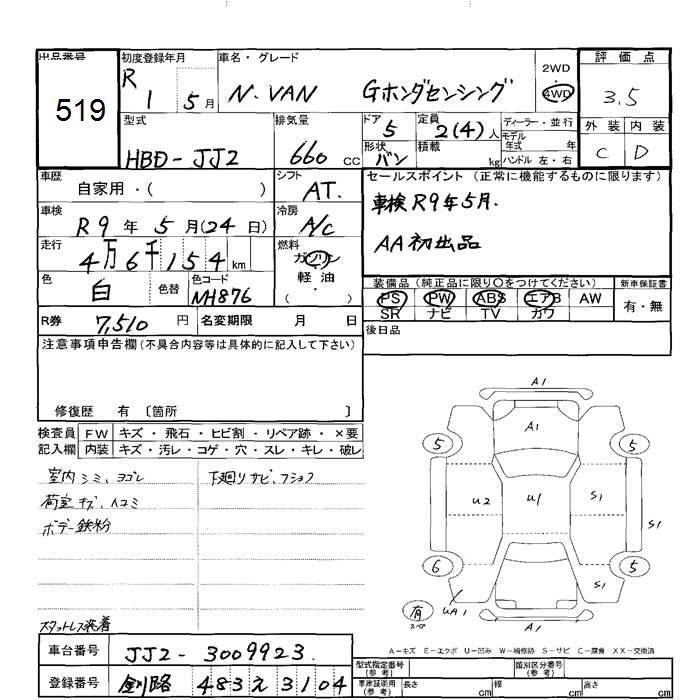 出品番号
519
初度登録年月
R 1 5月
車名・グレード
N-VAN Gホンダセンシング
2WD
4WD
評価点
3.5
外装 内装
C D
型式
HBD-JJ2
排気量
660 cc
ドア
5
形状
バン
定員
2(4)人
積載
kg
ディーラー・並行
モデル年式 年
ハンドル 左・右
車歴
自家用・( )
シフト
AT.
車検
R9年5月(24日)
冷房
A/C
走行
4万6千154km
燃料
ガソリン
軽油
( )
色
白
色替
色コード
NH876
R券
7,510円
名変期限 月 日
セールスポイント(正常に機能するものに限ります)
車検R9年5月.
AA初出品
装備品(純正品に限り〇をつけてください)
PS PW ABS エアB AW
SR ナビ TV カワ
新車保証書
有・無
後日品
注意事項申告欄(不具合内容等は具体的に記入して下さい)
修復歴 有〔箇所 〕
検査員
記入欄
FW キズ・飛石・ヒビ割・リペア跡・×要
内装 キズ・汚レ・コゲ・穴・スレ・キレ・破レ
室内シミ、ヨゴレ
下廻りサビ、フショク
荷室キズ、ヘコミ
ボデー鉄粉
スタットレス装着
A1
A1
5 5
U2 U1 S1
S1
6 5
S1
UA1
A1
A1
有
スペア
A-キズ E-エクボ U-凹み W-補修跡 S-サビ C-腐食 XX-交換済
車台番号
JJ2-3009923.
登録番号
釧路 483 え 3104
型式指定番号
(参考)
類別区分番号
(参考)
車庫証明用
(参考)
長さ cm
幅 cm
高さ cm